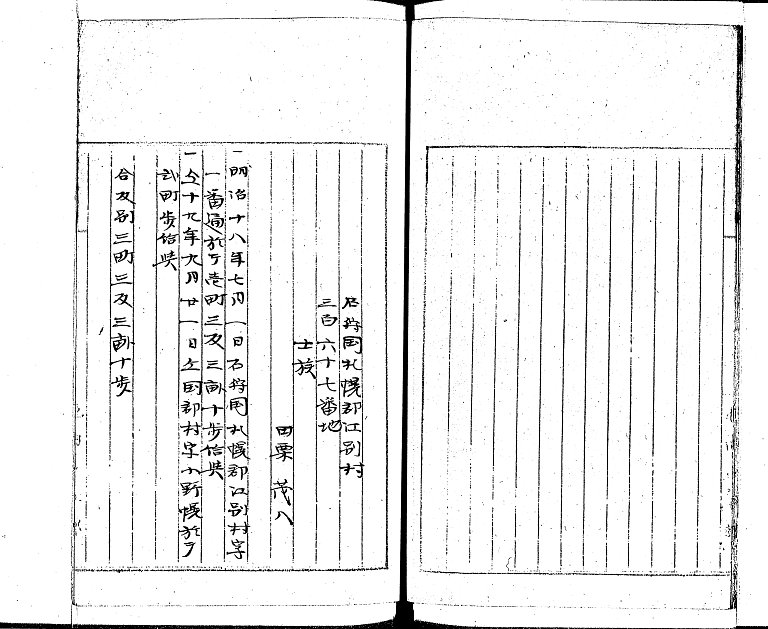 石狩国札幌郡江別村
三百六十七番地
士族
田栗茂八
一明治十八年七月一日石狩国札幌郡江別村字
一番通於テ壱町三反三畝十歩給与
一仝十九年九月廿一日仝国郡村字小野幌於テ
弐町歩給与
合反別三町三反三畝十歩